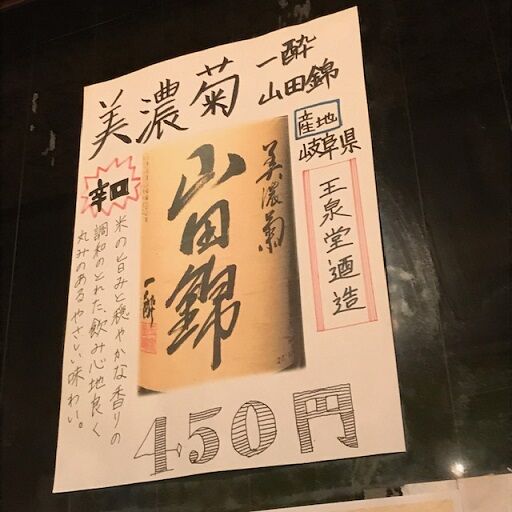 美濃菊
一酔
山田錦
産地
岐阜県
玉泉堂酒造
辛口
美濃菊
山田錦
一酔
米の旨みと穏やかな香りの
調和のとれた飲み心地良く
丸みのあるやさしい味わい。
450円